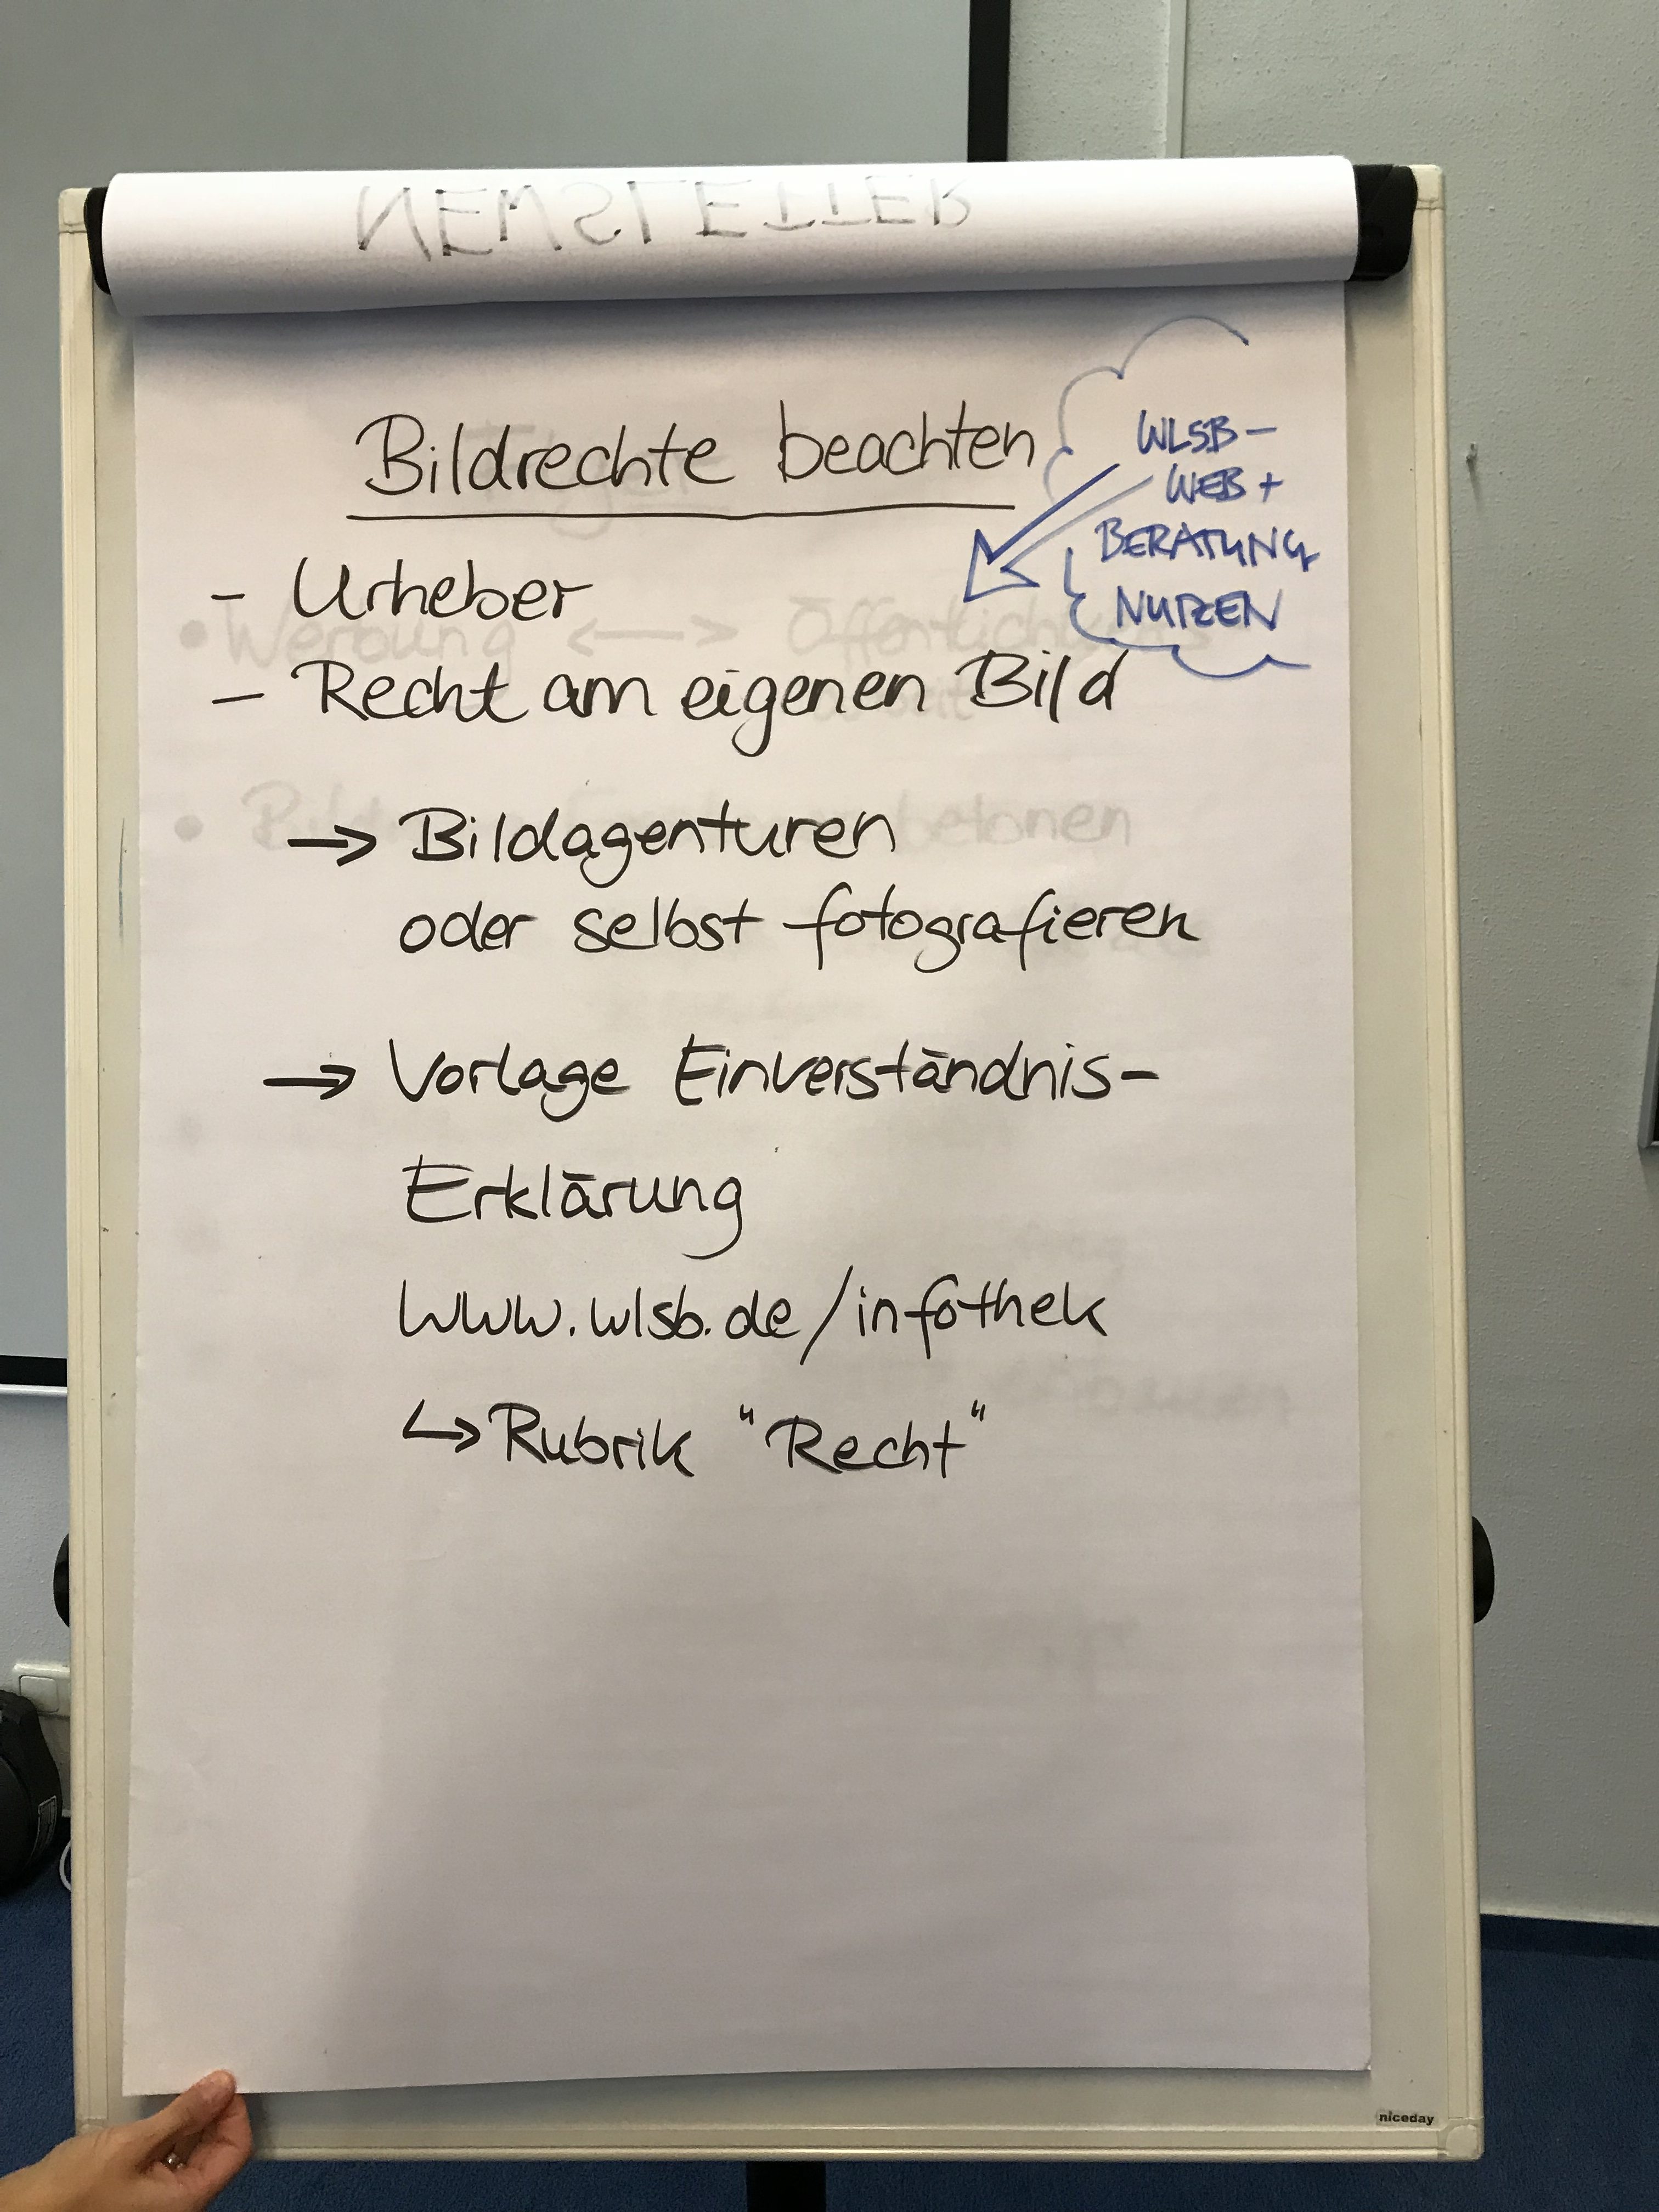 NEWSLETTER
Bildrechte beachten
WLSB-
WEB +
BERATUNG
NUTZEN
- Urheber
- Recht am eigenen Bild
→ Bildagenturen
oder selbst fotografieren
→ Vorlage Einverständnis-
Erklärung
www.wlsb.de/infothek
↳ Rubrik "Recht"
• Werbung <-> Öffentlichkeits
betonen
niceday